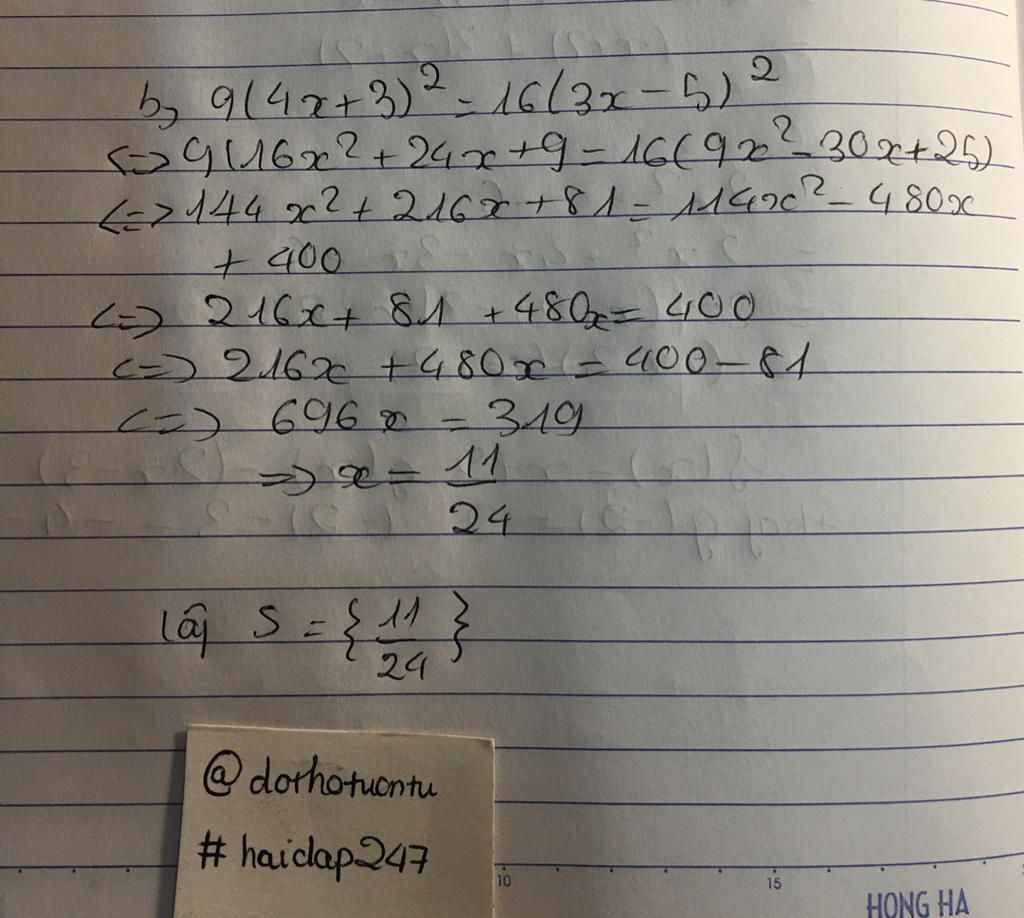 b, 9(4x+3)² = 16(3x-5)²
<=> 9(16x² + 24x + 9 = 16(9x² - 30x + 25)
<=> 144x² + 216x + 81 = 114x² - 480x
+ 400
<=> 216x + 81 + 480x = 400
<=> 216x + 480x = 400 - 81
<=> 696x = 319
=> x = 11/24
Vậy S = {11/24}
@dothotuontu
# haidap247
10 15
HONG HA